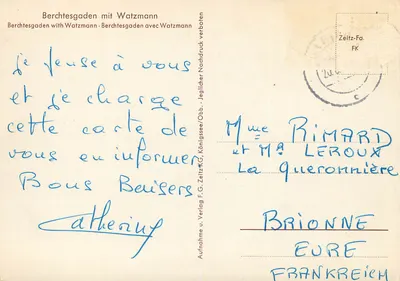 Berchtesgaden mit Watzmann
Berchtesgaden with Watzmann · Berchtesgaden avec Watzmann
je pense à vous
et je charge
cette carte de
vous en informer
Bons Baisers
Catherine
Aufnahme u. Verlag F. G. Zeitz KG, Königssee/Obb. - Jeglicher Nachdruck verboten
Zeitz-Fo.
FK
Mme RIMARD
et Mr LEROUX
La Queronnière
BRIONNE
EURE
FRANKREICH